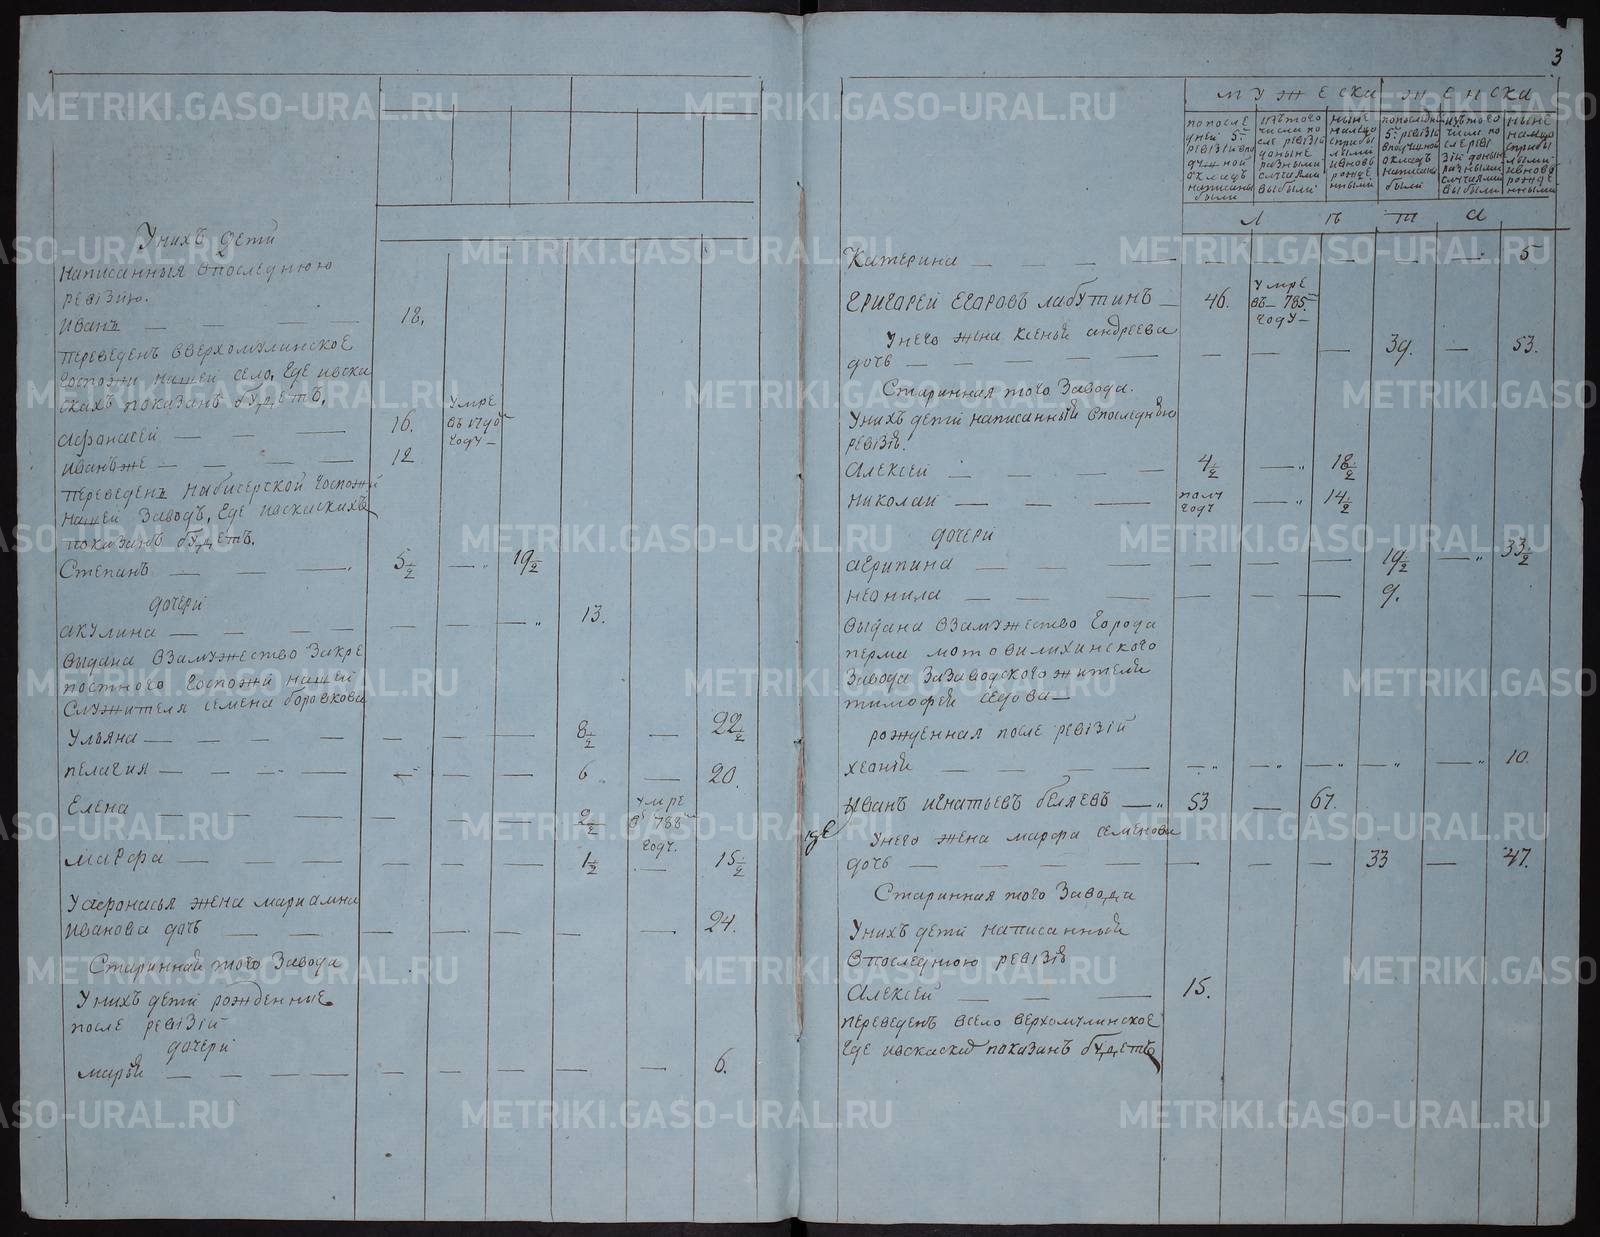 Унихъ дети
написанныя впоследнюю
ревизию.
Иванъ — — — — 18.
переведенъ вверхомулинское
госпожи нашей село, где ивска
скахъ показанъ будетъ.
афонасей — — — 16. умре
въ
году —
иванъ же — — — — 12
переведенъ набисерской госпожи
нашей заводъ, где ивскаскихъ
показанъ будетъ.
Степанъ — — — 5 1/2 — „ 19 1/2
дочери
акулина — — — — — — — „ 13.
выдана взамужество закре
постного госпожи нашей
служителя семена боровкова
Ульяна — — — — — — — 8 1/2 — 22 1/2
пелагия — — — — — — — 6 — 20.
Елена — — — — — — 2 1/2 умре
в 788
году.
марфа — — — — — — — 1 1/2 — 15 1/2
У афонасья жена мариамна
иванова дочь — — — — — — — — — 24.
Стариннай того завода
Унихъ дети рожденние
после ревизiи
дочери
марья — — — — — — — — — 6.
3
мужеска женска
по после
дней 5й
ревизiи впо
душной
окладъ
написаны
были
изътого
числа по
сле ревизiи
доныне
разными
случаями
выбыли
ныне
налицо
сприбы
лыми
ивновь
рожде
нными
попоследней
5й ревизiи
вподушной
окладъ
написаны
были
изътого
числа по
сле реви
зiи доныне
разными
случаями
выбыли
ныне
налицо
сприбы
лыми
ивновь
рожде
нными
л п т а
Катерина — — — — — — — — — 5
григорей егоровъ лабутинъ — 46. умре
въ — 785
году —
Унего жена ксенья андреева
дочь — — — — — — — — 39. — 53.
Старинная того завода.
Унихъ дети написанныя впоследнюю
ревизiю.
Алексей — — — — 4 1/2 — „ 18 1/2
николаи — — — полу
году — „ 14 1/2
дочери
агрипина — — — — — — — 19 1/2 — „ 33 1/2
неонила — — — — — — 9.
выдана взамужество города
перми мотовилихинского
завода зазаводского жителя
тимофея седова —
рожденная после ревизiи
— — — — — „ — „ — „ — „ — „ 10.
Иванъ игнатьевъ беляевъ — „ 53 — 67.
Унего жена марфа семенова
дочь — — — — — — — 33 — 47.
Старинная того завода
Унихъ дети написанныя
впоследнюю ревизiю
Алексей — — — 15.
переведенъ всело верхомулинское
где ивскаски показанъ будетъ